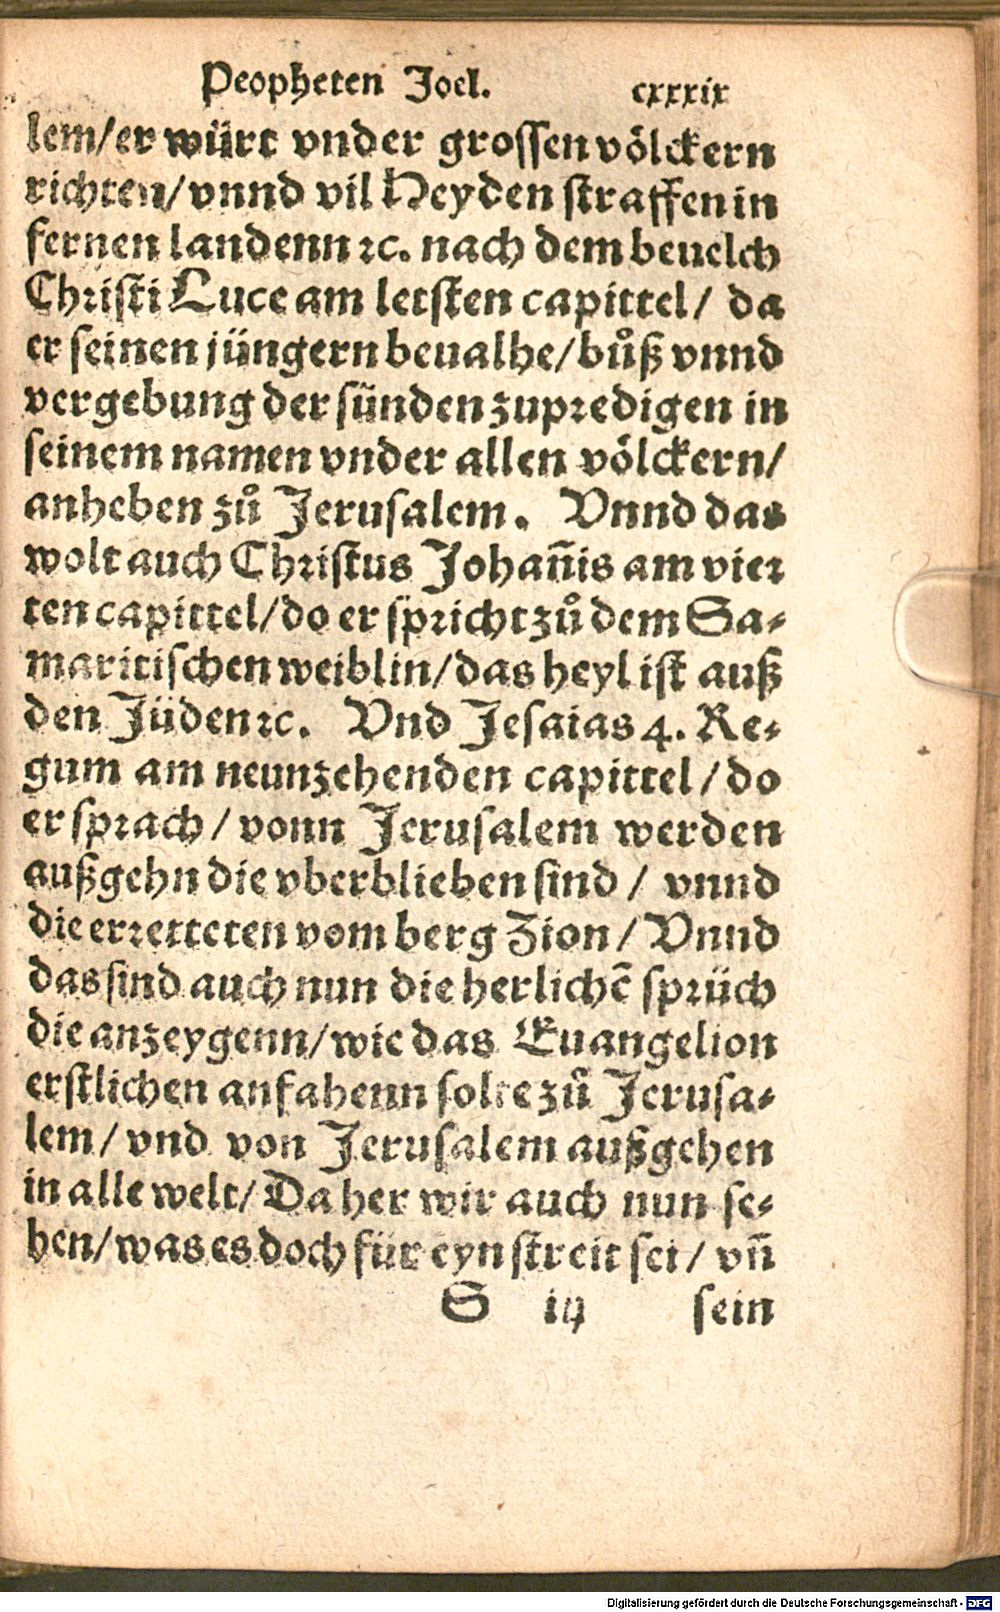 Peopheten Joel. cxxxix
lem/er würt vnder grossen völckern
richten/vnnd vil Heyden straffen in
fernen landenn ꝛc. nach dem beuelch
Christi Luce am letsten capittel/ da
er seinen jüngern beualhe/bůß vnnd
vergebung der sünden zupredigen in
seinem namen vnder allen völckern/
anheben zů Jerusalem. Vnnd das
wolt auch Christus Johan̄is am vier
ten capittel/do er spricht zů dem Sa⸗
maritischen weiblin/das heyl ist auß
den Jüden ꝛc. Vnd Jesaias 4. Re⸗
gum am neunzehenden capittel/do
er sprach/vonn Jerusalem werden
außgehn die vberblieben sind/ vnnd
die erretteten vom berg Zion/Vnnd
das sind auch nun die herlichē sprüch
die anzeygenn/wie das Euangelion
erstlichen anfahenn solte zů Jerusa⸗
lem/vnd von Jerusalem außgehen
in alle welt/Da her wir auch nun se⸗
hen/was es doch für eyn streit sei/vn̄
S iij sein
Digitalisierung gefördert durch die Deutsche Forschungsgemeinschaft - DFG